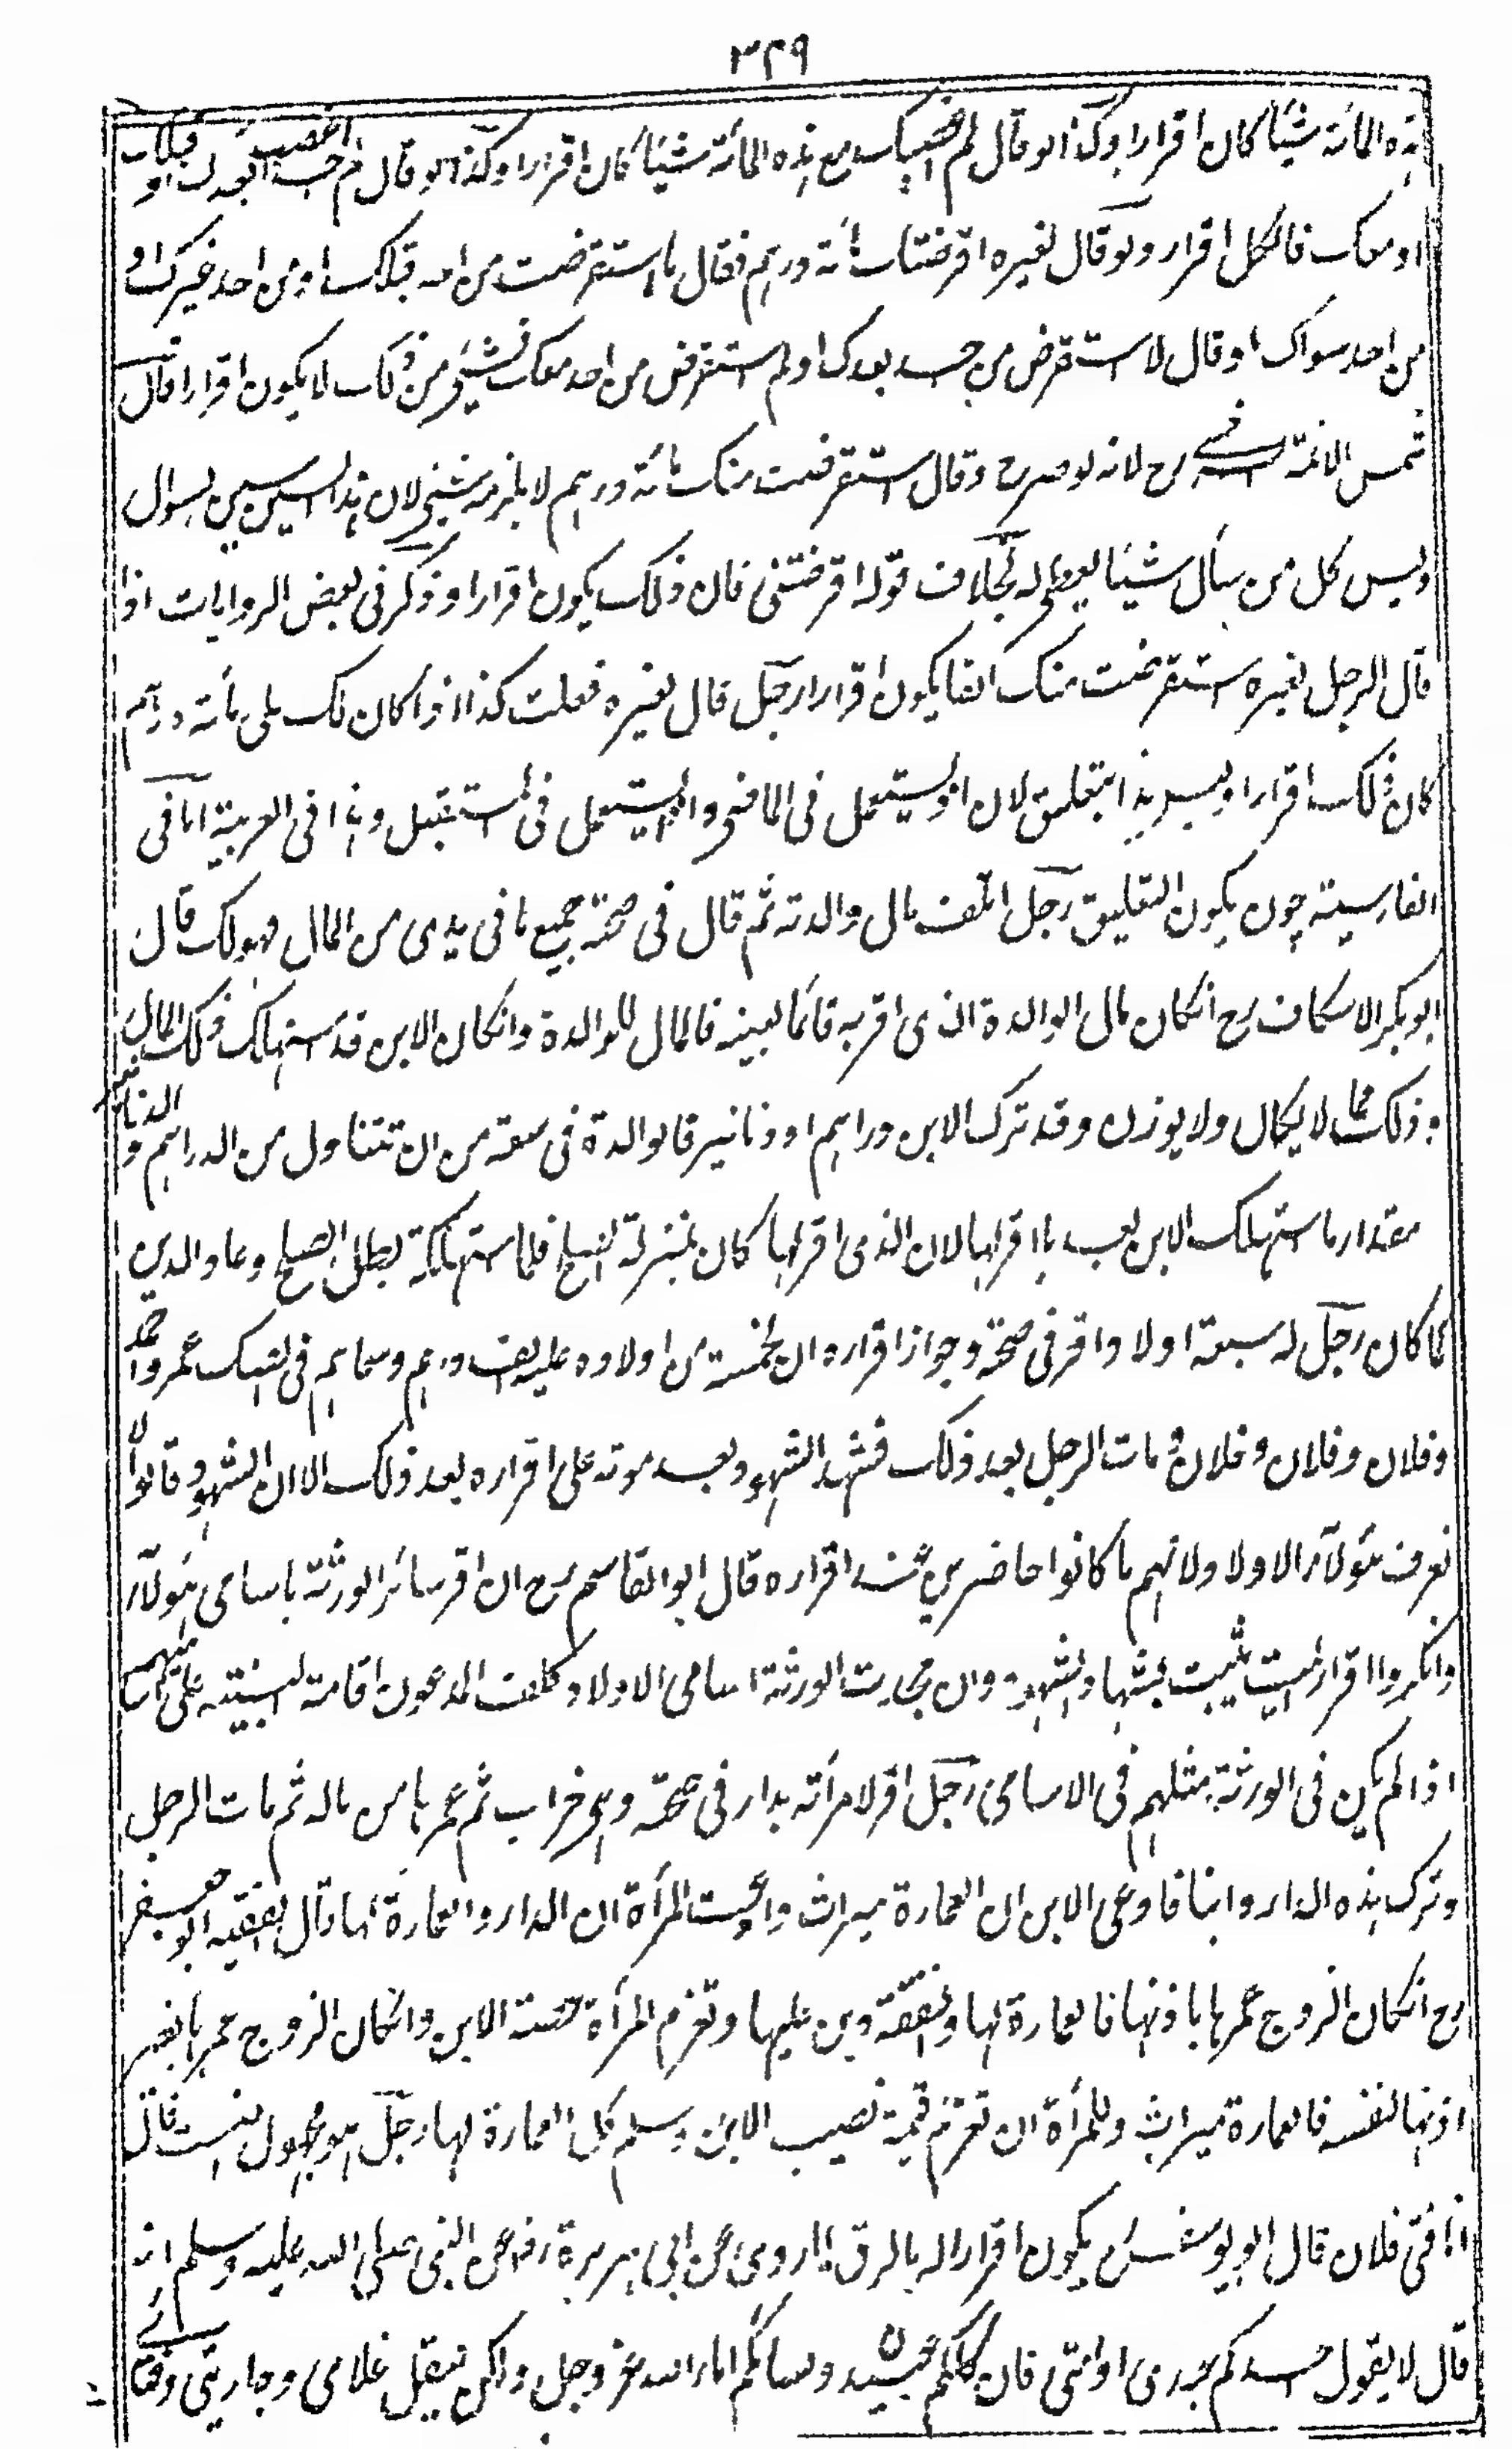 ٣٢٩
هذه المائة شيئا كان اقرارا وكذا لو قال لم اغصبك مع هذه المائة شيئا كان اقرارا وكذا لو قال لم اغصب احدا بعدك او قبلك
او معك فالكل اقرار ولو قال لغيره اقرضتك مائة درهم فقال ما استقرضت من احد قبلك او من احد غيرك او
من احد سواك او قال لا استقرض من احد بعدك او لم استقرض من احد معك فشيئ من ذلك لا يكون اقرارا قال
شمس الائمة السرخسي رح لانه لو صرح وقال استقرضت منك مائة درهم لا يلزمه شيئ لان هذا السين سين سوال
وليس كل من سأل شيئا يعطى له بخلاف قوله اقرضتني فان ذلك يكون اقرارا وذكر في بعض الروايات اذا
قال الرجل لغيره استقرضت منك الفا يكون اقرارا رجل قال لغيره فعلت كذا اذ كان لك على مأئة درهم
كان ذلك اقرارا وليس هذا بتعليق لان اذ يستعمل في الماضي واذا يستعمل في المستقبل وهذا في العربية اما في
الفارسية چون يكون التعليق رجل اتلف مال والدته ثم قال في صحته جميع ما في يدي من المال فهو لك قال
ابو بكر الاسكاف رح انكان مال الوالدة الذي اقر به قائما بعينه فالمال للوالدة وانكان الابن قد استهلك ذلك المال
وذلك مما لا يكال ولا يوزن وقد ترك الابن دراهم او دنانير فالوالدة في سعة من ان تتناول من الدراهم والدنانير
مقدار ما استهلك الابن بعد ما اقر لها لان الذي اقر لها كان بمنزلة الصلح فلما استهلكه بطل الصلح وعاد الدين
كما كان رجل له سبعة اولاد اقر في صحته وجواز اقراره ان لخمسة من اولاده عليه الف درهم وسماهم في الصك عمرو احمد
وفلان وفلان وفلان ومات الرجل بعد ذلك فشهد الشهود بعد موته على اقراره بعد ذلك الا ان الشهود قالوا لا
نعرف هؤلاء الاولاد لانهم ما كانوا حاضرين عند اقراره قال ابو القاسم رح ان اقر سائر الورثة باسامى هؤلاء
وانكروا اقرار الميت يثبت بشهادة الشهود وان جحدت الورثة اسامى الاولاد كلف المدعون اقامة البينة على اسمائهم
اذا لم يكن في الورثة مثلهم في الاسامى رجل اقر لامرأته بدار في صحته وهي خراب ثم عمرها من ماله ثم مات الرجل
وترك هذه الدار وابنا فادعى الابن ان العمارة ميراث وادعت المرأة ان الدار والعمارة لها قال الفقيه ابو جعفر
رح انكان الزوج عمرها باذنها فالعمارة لها والنفقة دين عليها وتغرم المرأة حصة الابن وانكان الزوج عمرها بغير
اذنها لنفسه فالعمارة ميراث وللمرأة ان تغرم قيمة نصيب الابن ويسلم كل العمارة لها رجل هو مجهول النسب قال
انا فتى فلان قال ابو يوسف رح يكون اقرارا له بالرق لما روي عن ابي هريرة رض عن النبي صلى الله عليه وسلم انه
قال لا يقول احدكم عبدي او امتي فان كلكم عبيد ونساءكم اماء الله عز وجل ولكن ليقل غلامي وجاريتي وفتاي